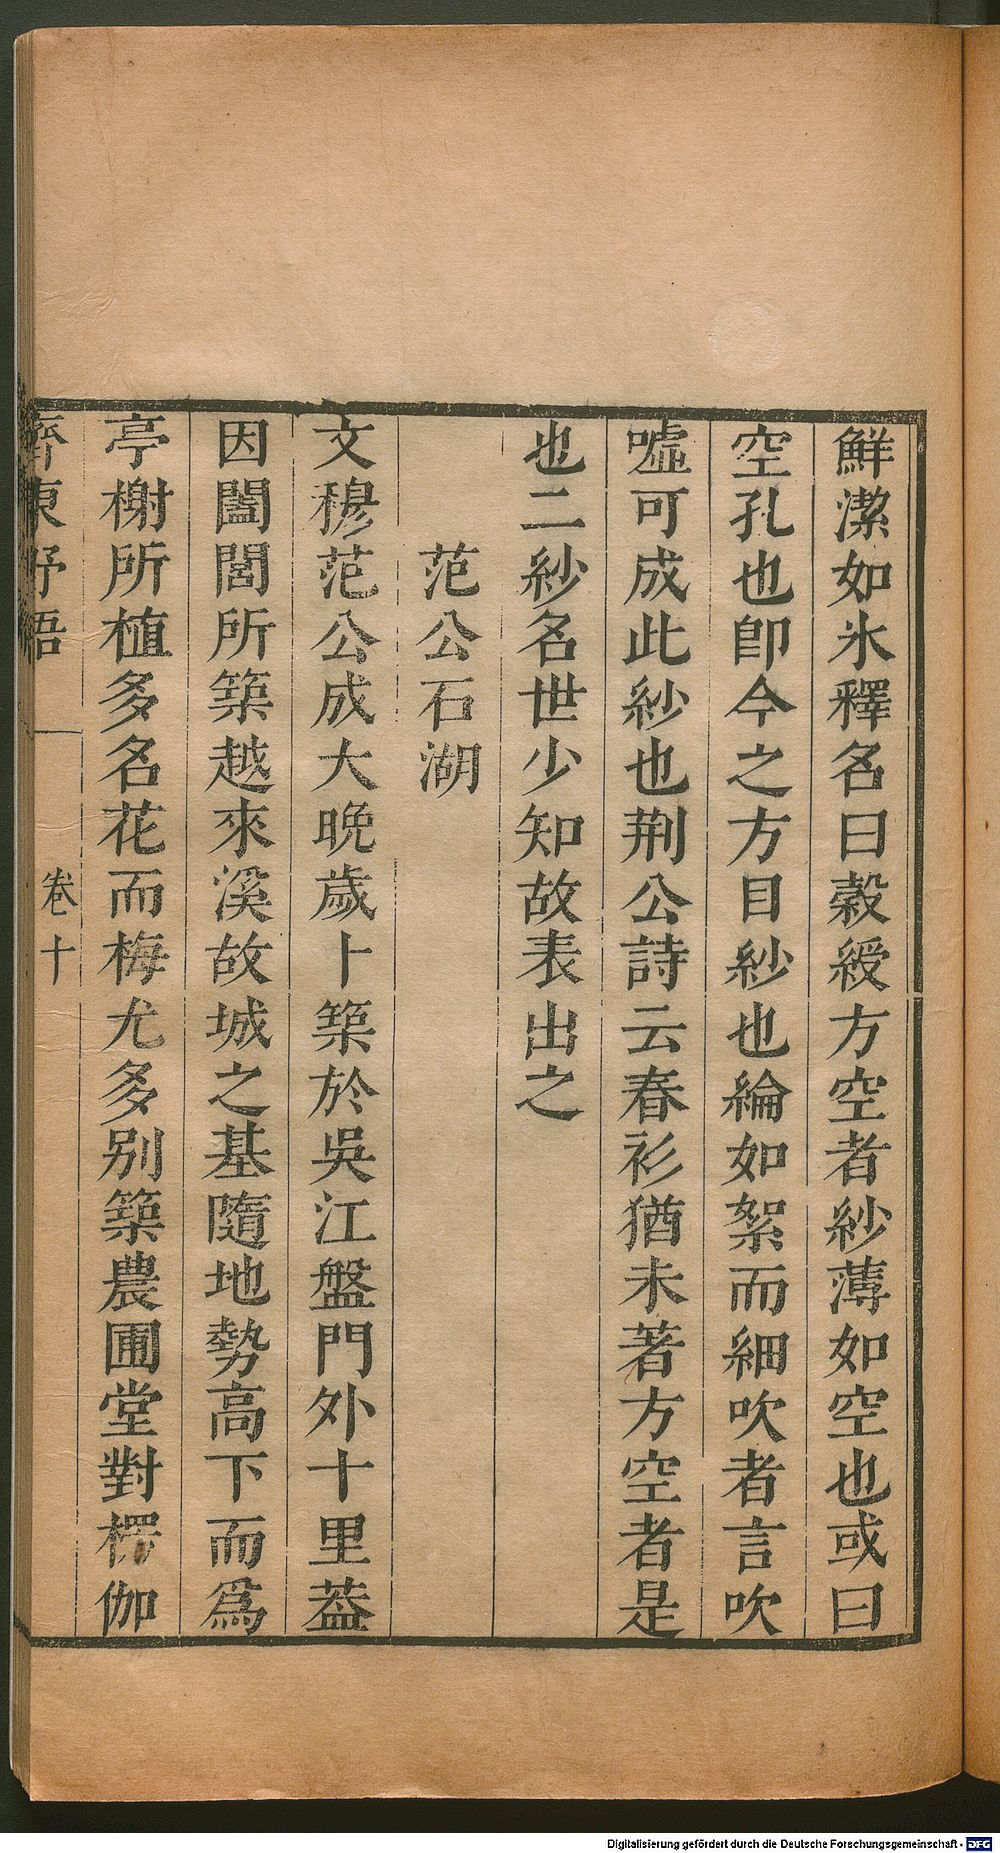 鮮潔如氷釋名曰縠綬方空者紗薄如空也或曰
空孔也卽今之方目紗也綸如絮而細吹者言吹
噓可成此紗也荆公詩云春衫猶未著方空者是
也二紗名世少知故表出之
范公石湖
文穆范公成大晩歲卜築於吳江盤門外十里葢
因闔閭所築越來溪故城之基隨地勢高下而爲
亭榭所植多名花而梅尤多别築農圃堂對楞伽
齊東野語 卷十
Digitalisierung gefördert durch die Deutsche Forschungsgemeinschaft - DFG